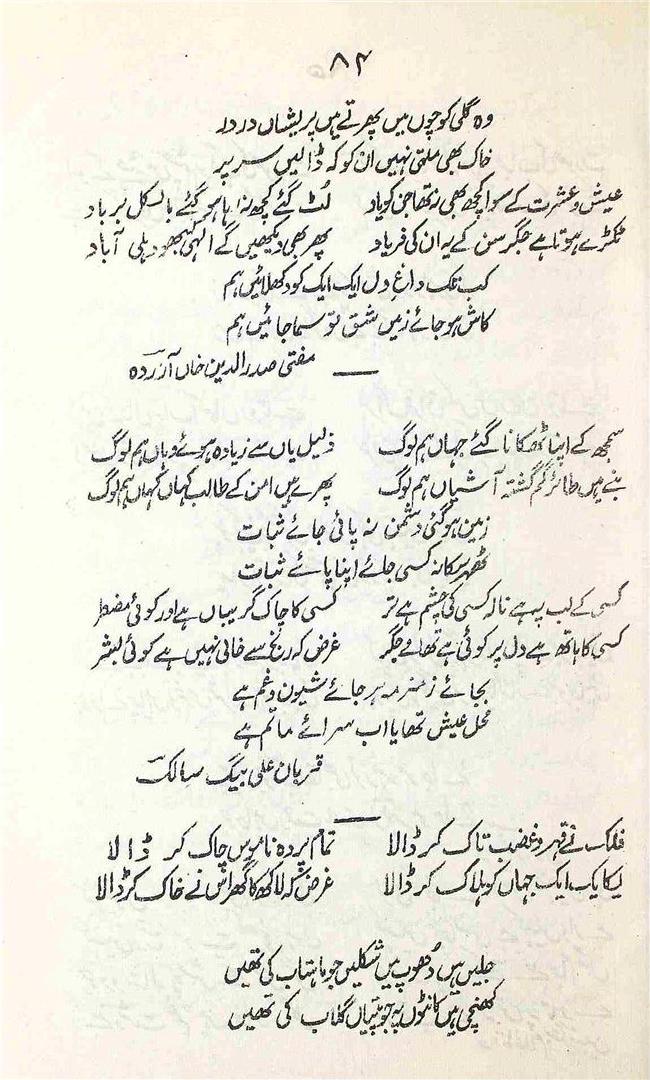 ۸۴
وہ گلی کوچوں میں پھرتے ہیں پریشاں در در
خاک بھی ملتی نہیں ان کو کہ ڈالیں سر پر
عیش و عشرت کے سوا کچھ بھی نہ تھا جن کو یاد لُٹ گئے کچھ نہ رہا ہو گئے بالکل برباد
ٹکڑے ہوتا ہے جگر سن کے یہ ان کی فریاد پھر بھی دیکھیں گے الٰہی کبھو دہلی آباد
کب تلک داغِ دل ایک ایک کو دکھلائیں ہم
کاش ہو جائے زمیں شق تو سما جائیں ہم
مفتی صدر الدین خاں آزردہ
سمجھ کے اپنا ٹھکانا گئے جہاں ہم لوگ ذلیل یاں سے زیادہ ہوئے وہاں ہم لوگ
بنے ہیں طائر گم گشتہ آشیاں ہم لوگ پھرے ہیں امن کے طالب کہاں کہاں ہم لوگ
زمین ہو گئی دشمن نہ پائی جائے ثبات
ٹھہر سکا نہ کسی جائے اپنا پائے ثبات
کسی کے لب پہ ہے نالہ کسی کی چشم ہے تر کسی کا چاک گریباں ہے اور کوئی مضطر
کسی کا ہاتھ ہے دل پر کوئی ہے تھامے جگر غرض کہ رنج سے خالی نہیں ہے کوئی بشر
بجائے زمزمہ ہر جائے شیون و غم ہے
محل عیش تھا یا اب سرائے ماتم ہے
قربان علی بیگ سالک
فلک نے قہر و غضب تاک کر ڈالا تمام پردہ ناموس چاک کر ڈالا
یکایک ایک جہاں کو ہلاک کر ڈالا غرض کہ لاکھ کا گھر اس نے خاک کر ڈالا
جلیں ہیں دُھوپ میں شکلیں جو ماہتاب کی تھیں
کھنچی ہیں کانٹوں پہ جو پتیاں گلاب کی تھیں